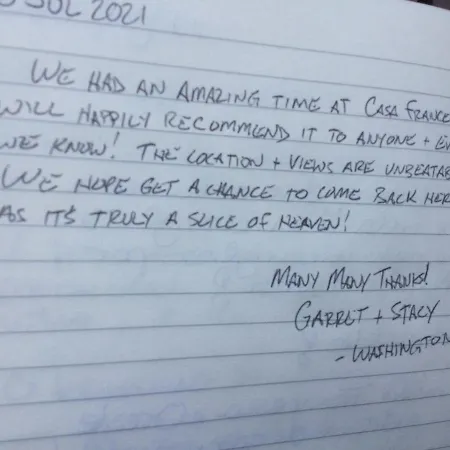 JUL 2021
WE HAD AN AMAZING TIME AT CASA FRANCE
WILL HAPPILY RECOMMEND IT TO ANYONE + EV
WE KNOW! THE LOCATION + VIEWS ARE UNBEATAB
WE HOPE GET A CHANCE TO COME BACK HER
AS IT'S TRULY A SLICE OF HEAVEN!
MANY MANY THANKS!
GARRET + STACY
- WASHINGTON